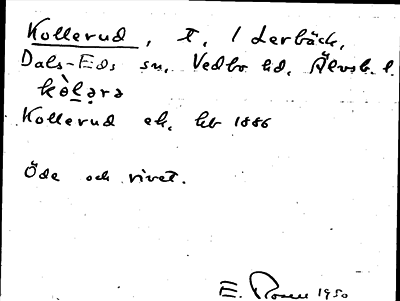 Kollerud, t, / Lerbäck,
Dals-Eds sn, Vedbo hd, Älvsb. l.
kòl̠ə̣rə
Kollerud ek. kb 1886
Öde och rivet.
E. Rosen 1950